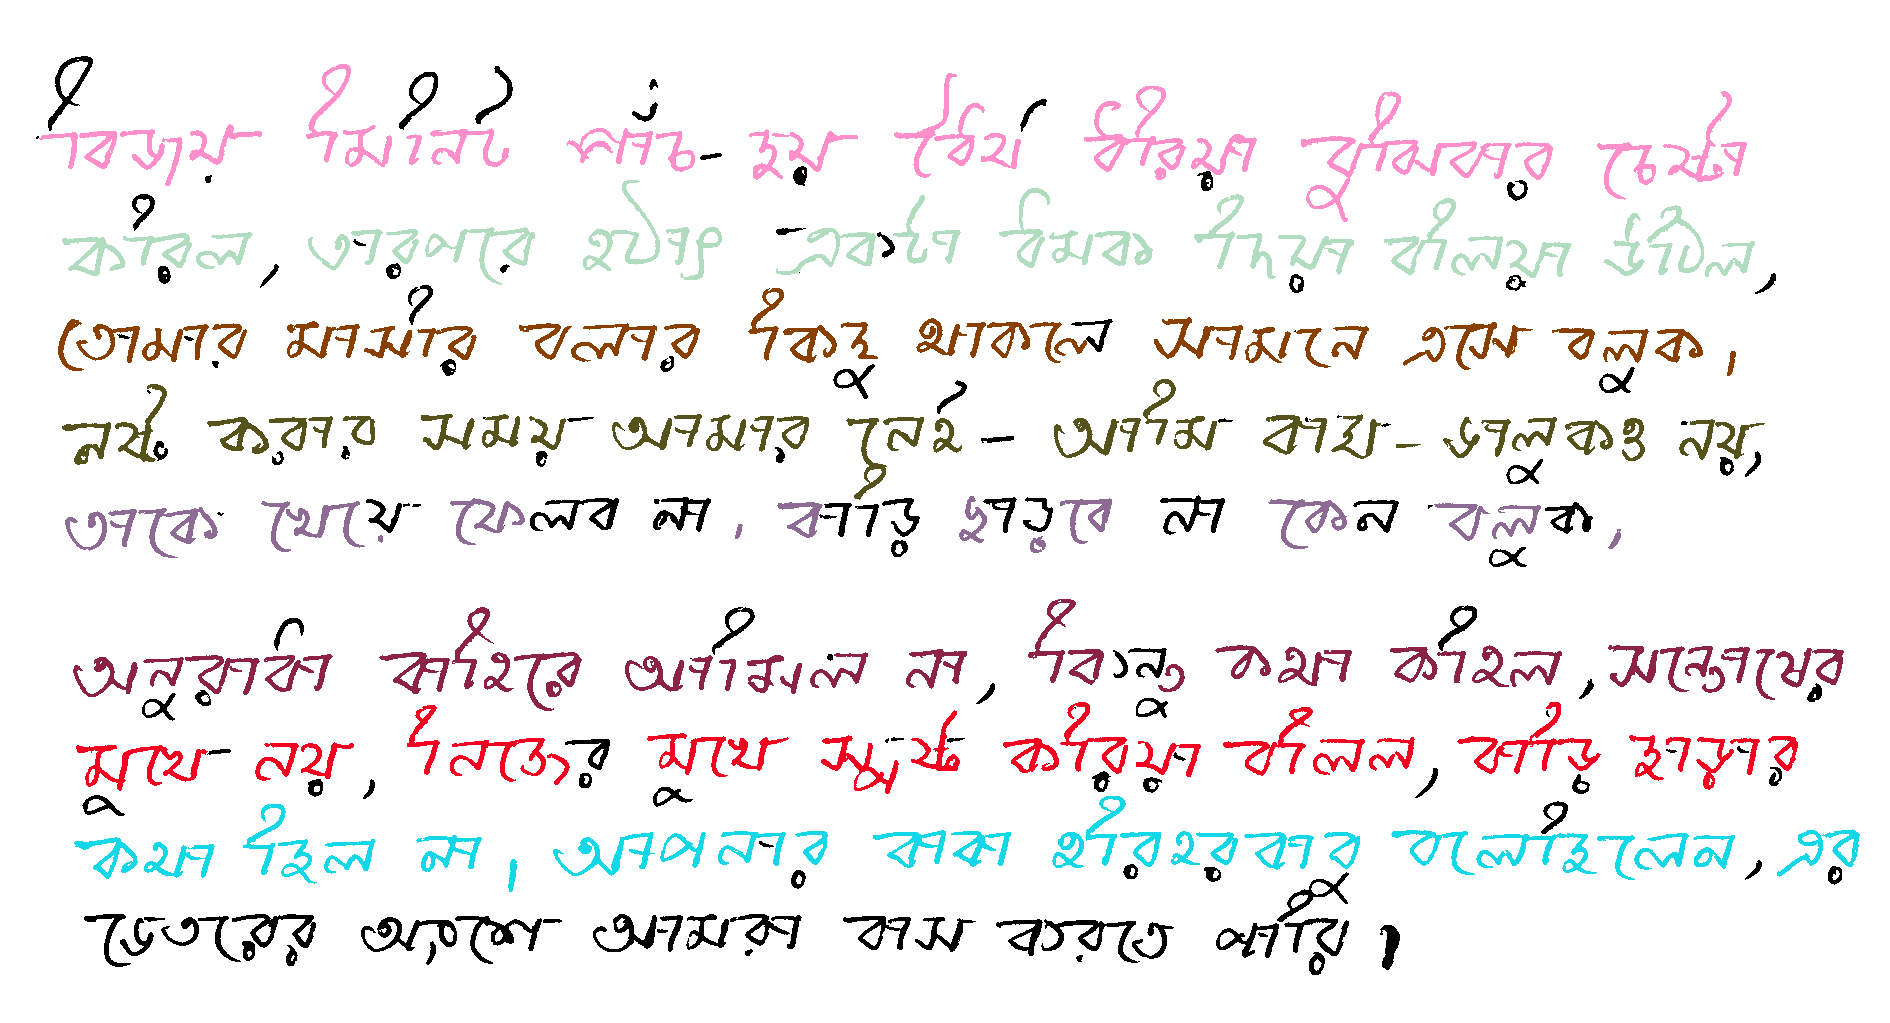 বিজয় মিনিট পাঁচ-ছয় ধৈর্য ধরিয়া বুঝিবার চেষ্টা
করিল, তারপরে হঠাৎ একটা ধমক দিয়া বলিয়া উঠিল,
তোমার মাসীর বলার কিছু থাকলে সামনে এসে বলুক।
নষ্ট করার সময় আমার নেই - আমি বাঘ-ভালুকও নয়,
তাকে খেয়ে ফেলব না। বাড়ি ছাড়বে না কেন বলুক।
অনুরাধা বাহিরে আসিল না, কিন্তু কথা কহিল, সন্তোষের
মুখে নয়, নিজের মুখে স্পষ্ট করিয়া বলিল, বাড়ি ছাড়ার
কথা ছিল না। আপনার বাবা হরিহরবাবু বলেছিলেন, এর
ভেতরের অংশে আমরা বাস করতে পারি।